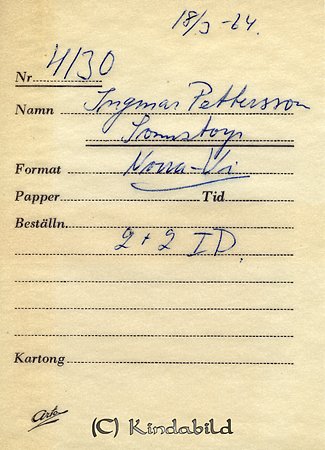 18/3 - 24.
Nr 4130
Namn Ingmar Pettersson
Format Norra-Vi
Papper Tid
Beställn.
2+2 ID.
Kartong
Ark
(C) Kindabild